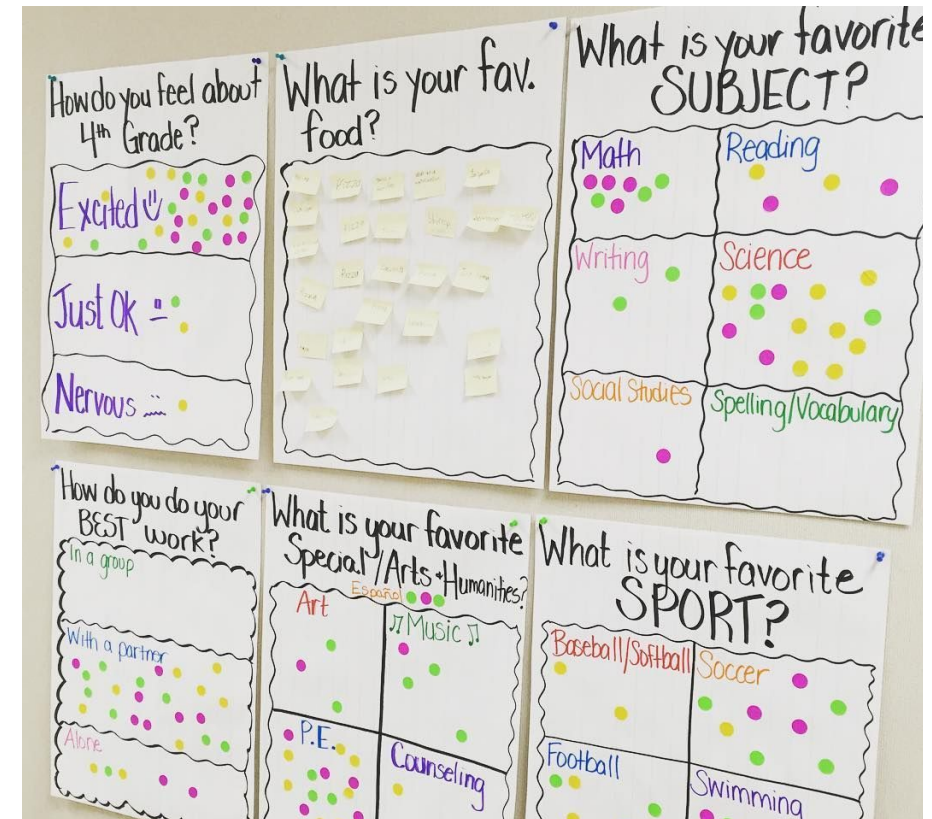 How do you feel about
4th Grade?
Excited
Just Ok
Nervous
What is your fav.
food?
Pizza
Pizza
What is your favorite
SUBJECT?
Math
Reading
Writing
Science
Social Studies
Spelling/Vocabulary
How do you do your
BEST work?
In a group
With a partner
Alone
What is your favorite
Special/Arts+Humanities?
Español
Art
Music
P.E.
Counseling
What is your favorite
SPORT?
Baseball/Softball
Soccer
Football
Swimming